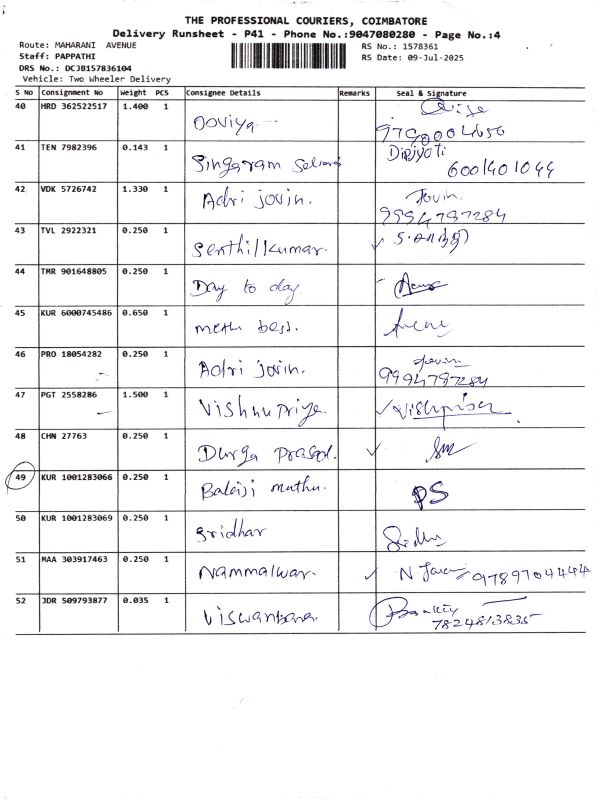 THE PROFESSIONAL COURIERS, COIMBATORE
Delivery Runsheet - P41 - Phone No.:9047080280 - Page No.:4
Route: MAHARANI AVENUE
RS No.: 1578361
Staff: PAPPATHI
RS Date: 09-Jul-2025
DRS No.: DCJB157836104
Vehicle: Two Wheeler Delivery
S No Consignment No Weight PCS Consignee Details Remarks Seal & Signature
40 HRD 362522517 1.400 1 Ooviya
41 TEN 7982396 0.143 1 Singaram Dipjyoti
6001401044
42 VDK 5726742 1.330 1 Adri jovin. Jovin
9994797284
43 TVL 2922321 0.250 1 Senthilkumar.
44 TMR 901648805 0.250 1 Day to day
45 KUR 6000745486 0.650 1 meth best.
46 PRO 18054282 0.250 1 Adri jovin. Jovin
9994797284
47 PGT 2558286 1.500 1 Vishnu Priya
48 CHN 27763 0.250 1 Durga Prasad.
49 KUR 1001283066 0.250 1 Balaji muthu. PS
50 KUR 1001283069 0.250 1 Sridhar
51 MAA 303917463 0.250 1 Nammalwar. N 9789704444
52 JDR 509793877 0.035 1
7824813835